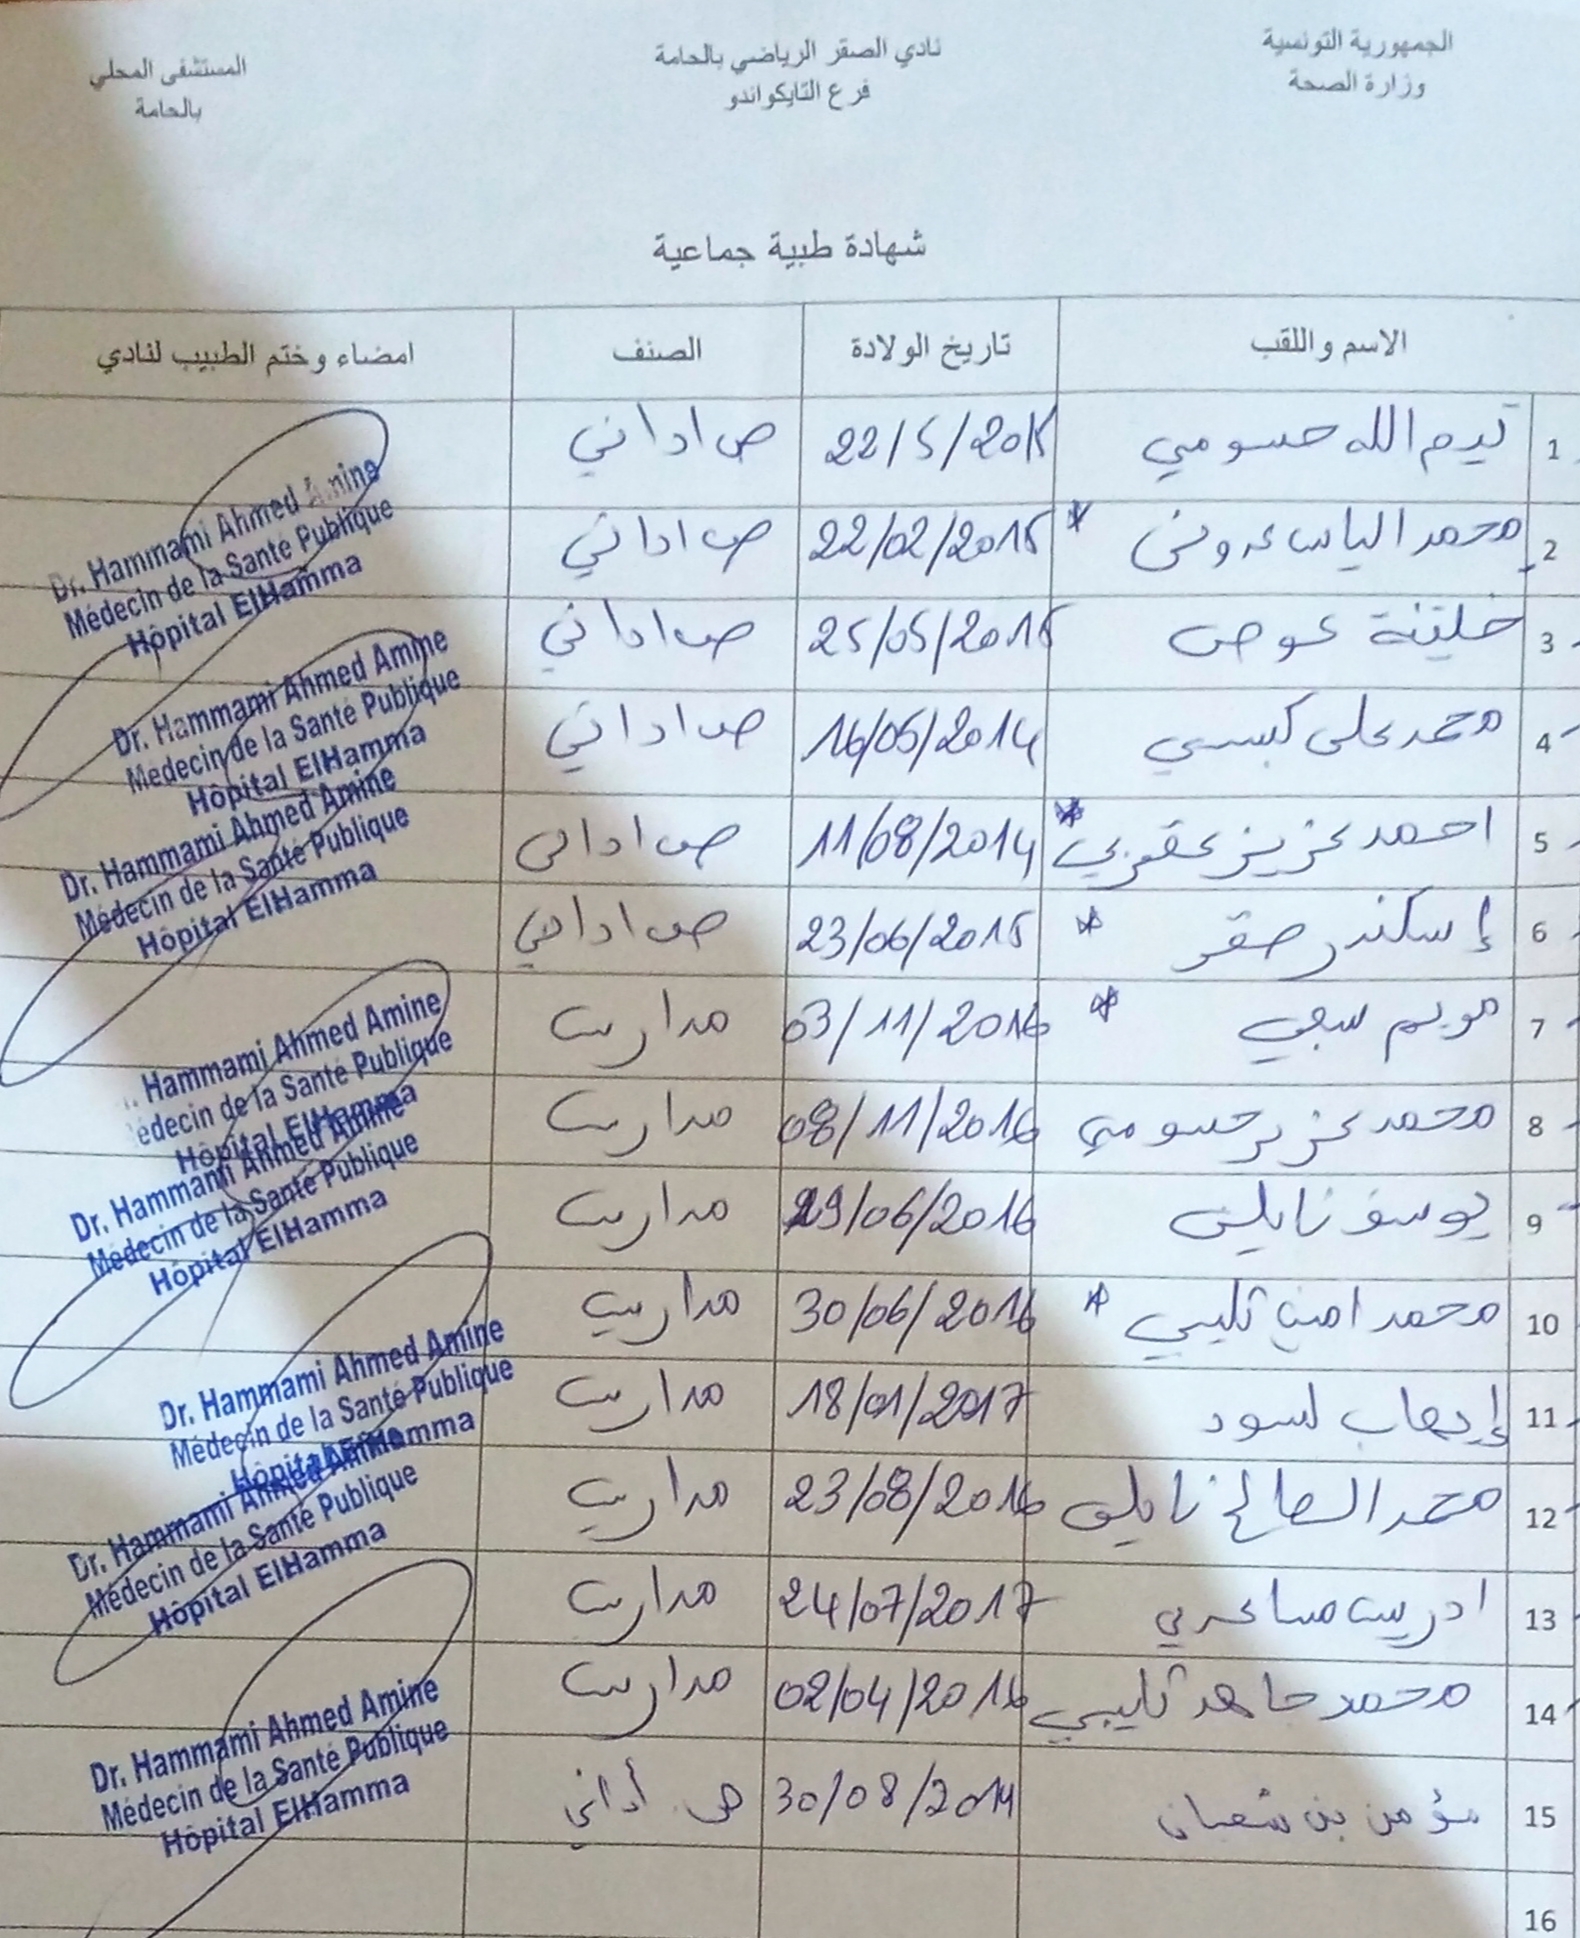 الجمهورية التونسية
وزارة الصحة
نادي الصقر الرياضي بالحامة
فرع التايكواندو
المستشفى المحلي
بالحامة
شهادة طبية جماعية
الاسم واللقب تاريخ الولادة الصنف امضاء وختم الطبيب لنادي
1 الله حسومي 22/5/ ص اداني
2 محمد الياس 22/02/2015 ص اداني
3 عوض 25/05/2015 ص اداني
4 محمد علي كبسي 16/05/2014 ص اداني
5 احمد عزيز عقربي * 11/08/2014 ص اداني
6 إسكندر صقر * 23/06/2015 ص اداني
7 مريم سبعي * 03/11/2016 مدارس
8 محمد عزيز حسومي 08/11/2016 مدارس
9 يوسف نايلي 29/06/2016 مدارس
10 محمد امين تليبي * 30/06/2016 مدارس
11 إيهاب لسود 18/01/2017 مدارس
12 محمد الصالح نايلي 23/08/2016 مدارس
13 ادريس مساعدي 24/07/2017 مدارس
14 محمد جاهد تليبي 02/04/2016 مدارس
15 مؤمن بن شعبان 30/08/2014 ص. أداني
16
Dr. Hammami Ahmed Amine
Médecin de la Santé Publique
Hôpital ElHamma
Dr. Hammami Ahmed Amine
Médecin de la Santé Publique
Hôpital ElHamma
Dr. Hammami Ahmed Amine
Médecin de la Santé Publique
Hôpital ElHamma
Hammami Ahmed Amine
édecin de la Santé Publique
Hôpital ElHamma
Dr. Hammami Ahmed Amine
Médecin de la Santé Publique
Hôpital ElHamma
Dr. Hammami Ahmed Amine
Médecin de la Santé Publique
Hôpital ElHamma
Dr. Hammami Ahmed Amine
Médecin de la Santé Publique
Hôpital ElHamma
Dr. Hammami Ahmed Amine
Médecin de la Santé Publique
Hôpital ElHamma